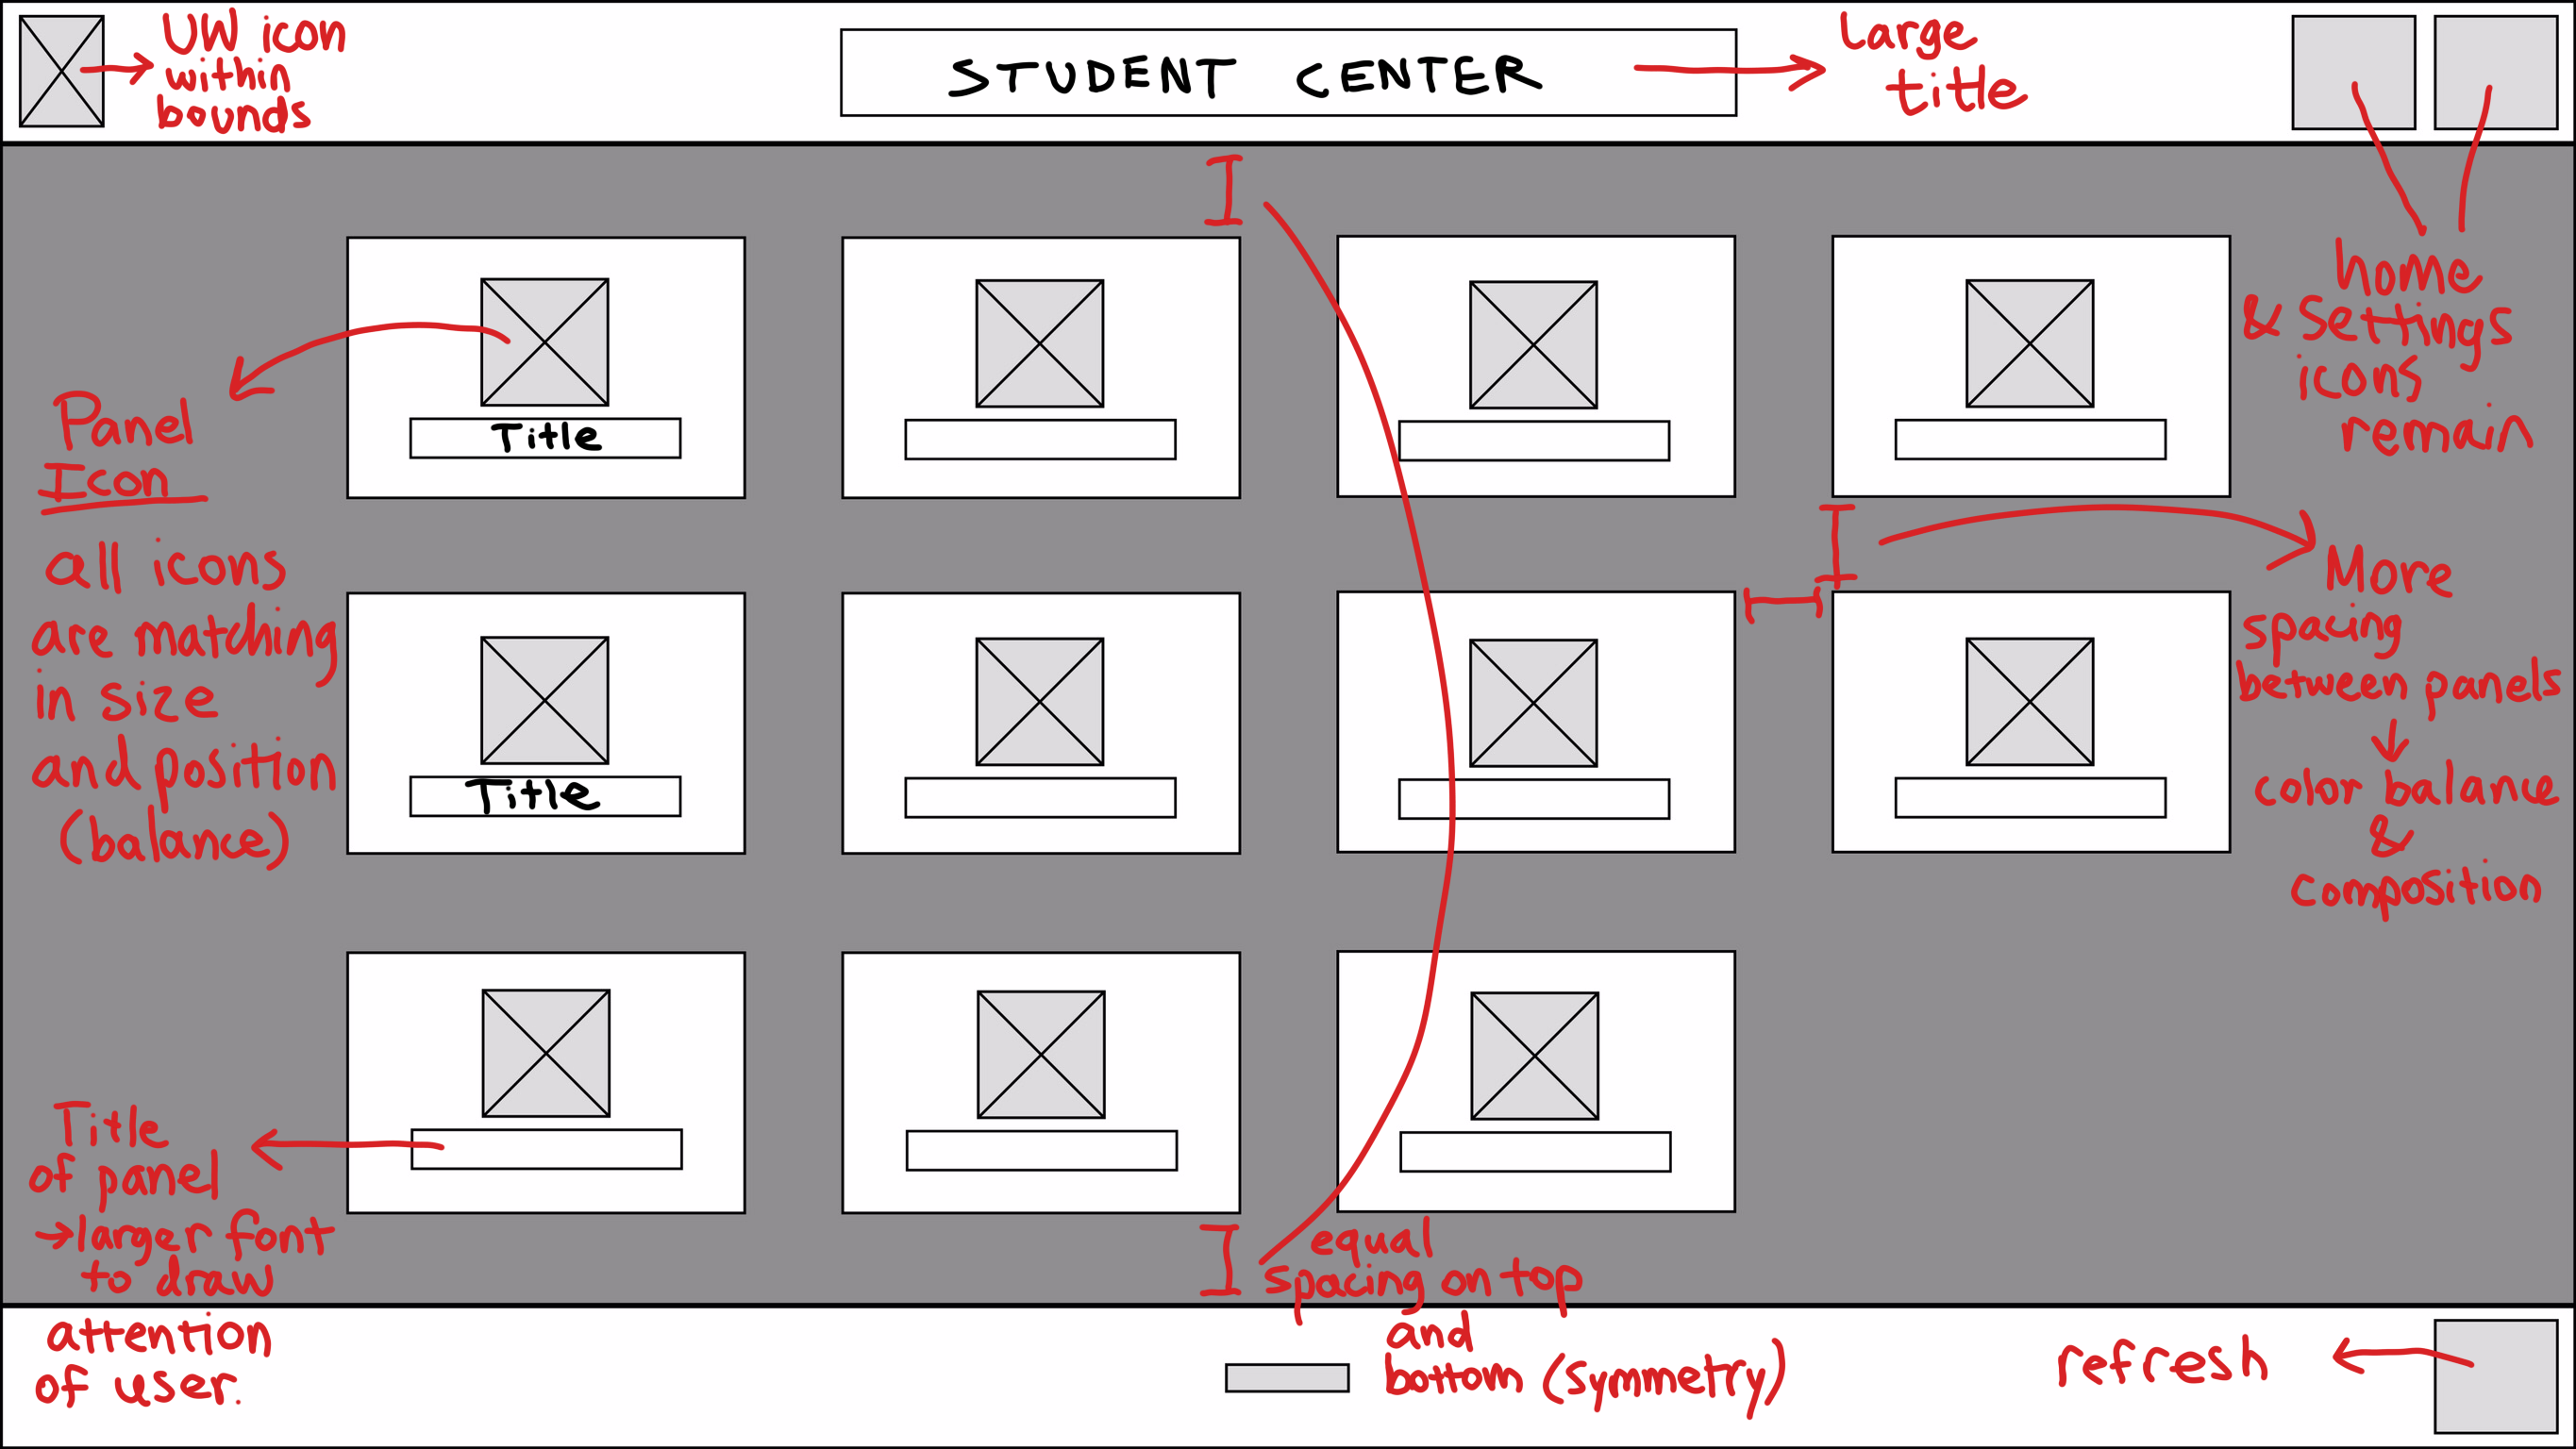 UW icon
within
bounds
STUDENT CENTER
Large
title
home
& settings
icons
remain
Panel
Icon
all icons
are matching
in size
and position
(balance)
Title
Title
More
spacing
between panels
color balance
&
composition
Title
of panel
→ larger font
to draw
attention
of user.
equal
spacing on top
and
bottom (symmetry)
refresh